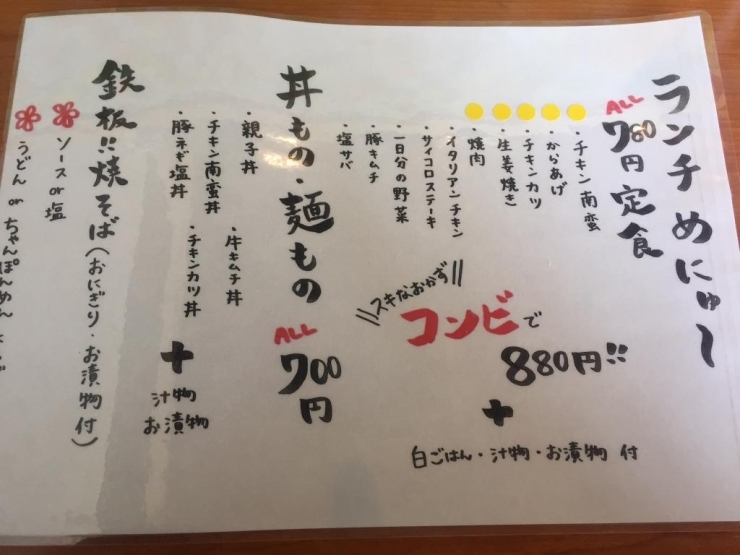 ランチめにゅー
ALL
780円定食
・チキン南蛮
・からあげ
・チキンカツ
・生姜焼き
・焼肉
・イタリアンチキン
・サイコロステーキ
・一日分の野菜
・豚キムチ
・塩サバ
\\スキなおかず//
コンビで
880円!!
+
白ごはん・汁物・お漬物 付
丼もの・麺もの
ALL
700円
・親子丼
・牛キムチ丼
・チキン南蛮丼
・チキンカツ丼
・豚ネギ塩丼
+
汁物
お漬物
鉄板!!焼そば(おにぎり・お漬物付)
ソースor塩
うどん or ちゃんぽんめん